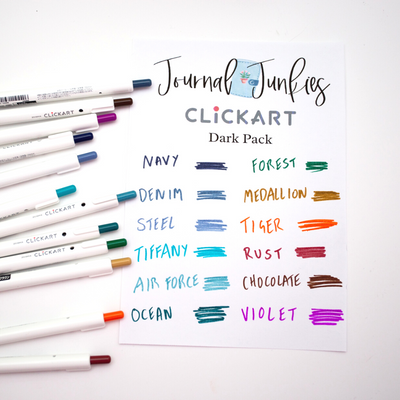 Journal Junkies
CLiCKART
Dark Pack
NAVY FOREST
DENIM MEDALLION
STEEL TIGER
TIFFANY RUST
AIR FORCE CHOCOLATE
OCEAN VIOLET
CLiCKART
CLiCKART
CLiCKART